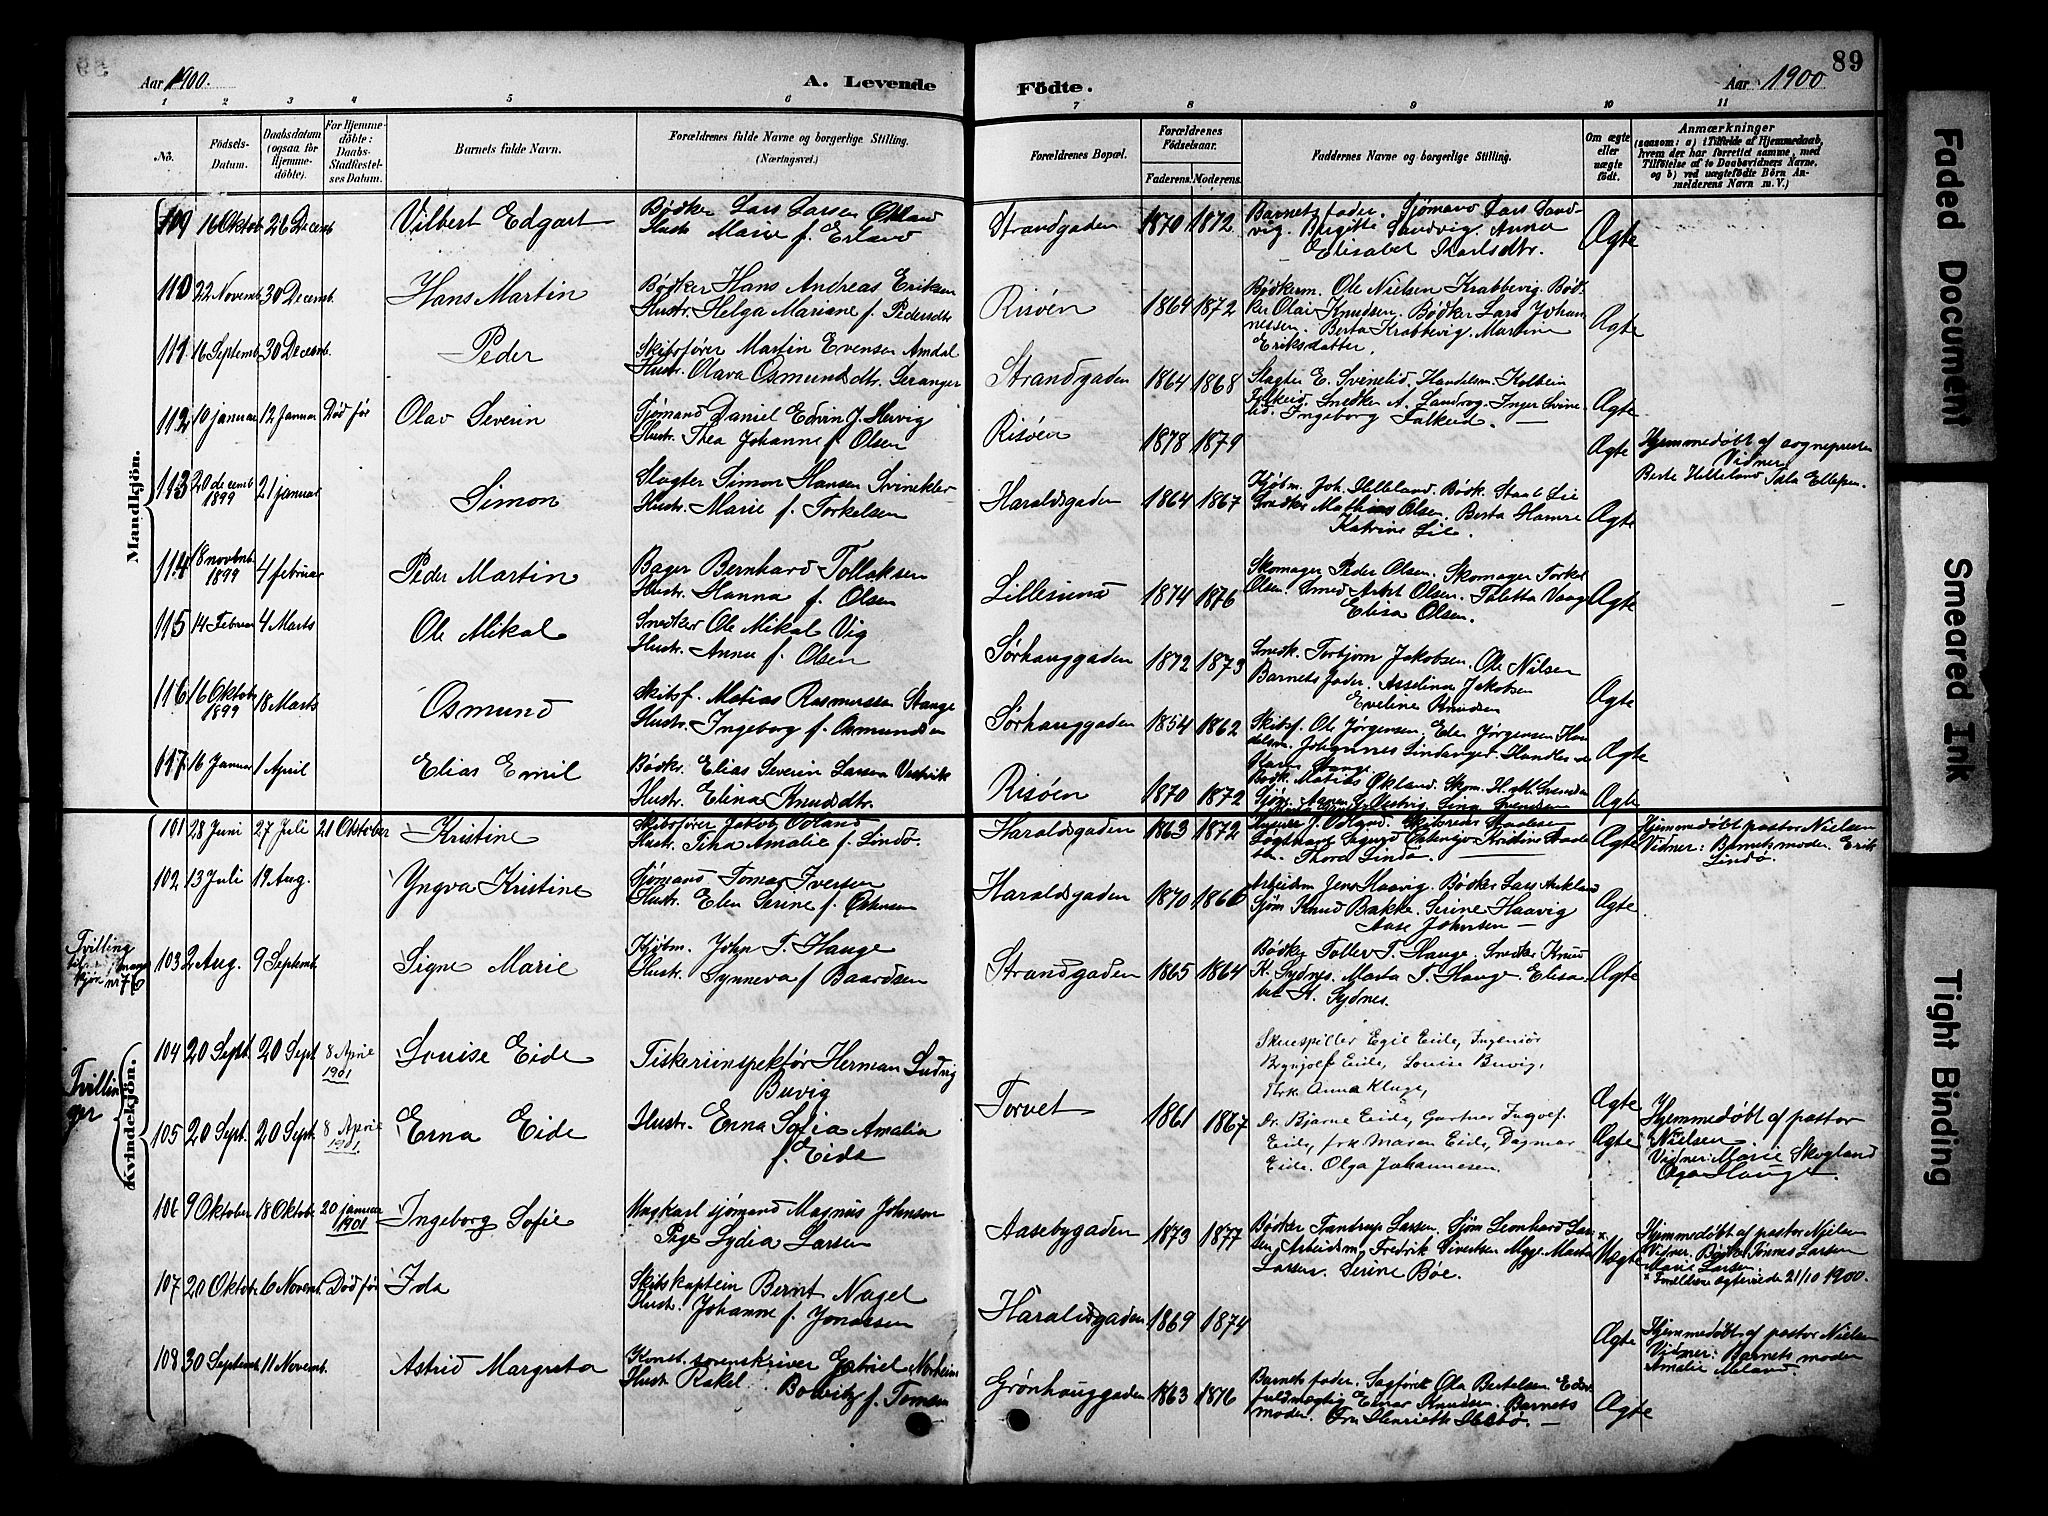 Aar 1900. A. Levende Födte. Aar 1900 89
1 2 3 4 5 6 7 8 9 10 11
No. Födsels-Datum. Daabsdatum (ogsaa for Hjemmedöbte). For Hjemmedöbte: Daabs-Stadfæstelses-Datum. Barnets fulde Navn. Forældrenes fulde Navne og borgerlige Stilling. (Næringsvei.) Forældrenes Bopæl. Forældrenes Födselsaar. Faderens. Moderens. Faddernes Navne og borgerlige Stilling. Om ægte eller uægte født. Anmærkninger
(saasom: a) i Tilfælde af Hjemmedaab, hvem der har forrettet samme, med Tilföielse af to Daabsvidners Navne, og b) ved uægtefödte Börn Anmelderens Navn m. V.)
Mandkjön.
109 16 Oktob 26 Decemb Vilbert Edgart Bødker Lars Larsen Økland
Hustr Marie f. Erland Strandgaden 1870 1872 Barnets fader. Sjømand Lars Sandvig. Brigitte Sandvig. Anna
Elisabet Karlsdtr. Ægte
110 22 Novemb. 30 Decemb. Hans Martin Bødker Hans Andreas Eriksen
Hustr. Helga Mariane f. Pedersdtr Risøen 1864 1872 Bødkerm. Ole Nielsen Krabbevig. Bødker Olai Knudsen. Bødker Lars Johannessen. Berta Krabbevig. Martin
Eriksdatter. Ægte
111 16 Septemb 30 Decemb. Peder Skibsfører Martin Evensen Amdal
Hustr. Olava Osmundsdtr. Seranger Strandgaden 1864 1868 Slagter E. Svinelid. Handelsm. Kolbein
Falkeid. Snedker A. Sandvog. Inger Svinelid. Ingeborg Falkeid. Ægte
112 10 januar 12 Januar Død før Olav Severin Sjømand Daniel Edvin J. Hervig
Hustr. Thea Johanne f. Olsen Risøen 1878 1879 Ægte Hjemmedøbt af sognepresten
Vidner:
Berte Helleland
113 20 decemb 1899 21 januar Simon Slagter Simon Hansen
Hustr. Marie f. Torkelsen Haraldsgaden 1864 1867 Kjøbm. Joh. Helleland. Bødk. Lie
Snedker Mathias Olsen. Berta Hamre
Katrine Lie. Ægte
114 18 novbmb. 1899 4 februar Peder Martin Bager Bernhard Tollaksen
Hustr. Hanna f. Olsen Lillesund 1874 1876 Skomager Peder Olsen. Skomager Torkel
Olsen. Smed Olsen. Taletta Vaag
Elisa Olsen. Ægte
115 14 Februar 4 Marts Ole Mikal Snedker Ole Mikal Vig
Hustr. Anna f. Olsen Sørhauggaden 1872 1873 Snedk. Torbjørn Jakobsen. Ole Nilsen
Barnets fader. Asseline Jakobsen
Eveline Knudsen Ægte
116 16 Oktob 1899 18 Marts Osmund Skibsf. Matias Rasmussen Stange
Hustr. Ingeborg f. Osmundsen Sørhauggaden 1854 1862 Skibsf. Ole Jørgensen. Jørgensen Johannes Lindanger. Ægte
117 16 Januar 1 April Elias Emil Bødkr. Elias Severin Larsen
Hustr. Elina Knudsdtr. Risøen 1870 1872 Bødk. Matias Økland. Skom. H. M. Svendsen
Sjøm. Ægte
Kvindekjön.
101 28 Juni 27 Juli 21 Oktober Kristine Skibsfører Jakob Odland
Hustr. Tina Amalie f. Lindø. Haraldsgaden 1863 1872 Thora Lindø Ægte Hjemmedøbt pastor Nielsen
Vidner: Barnets moder. Erik
Lindø.
102 13 Juli 19 Aug. Yngva Kristine Sjømand Tomas Iversen
Hustr. Elen Serine f. Østensen Haraldsgaden 1870 1866 Arbeidsm Jens Haavig. Bødker Lars
Sjøm Knud Bakke. Serine Haavig
Aase Johnsen Ægte
Tvilling til mandkjøn nr 76
103 2 Aug. 9 Septemb. Signe Marie Kjøbm. John T. Hauge
Hustr. Synneva f. Baardsen Strandgaden 1865 1864 Bødker Tollev T. Hauge. Snedker Knud
K. Sydnes. Marta T. Hauge. Elisabet K. Sydnes. Ægte
Tvillinger
104 20 Sept. 20 Sept. 8 April 1901 Louise Eide Fiskeriinspektør Herman Ludvig
Buvig Torvet 1861 1867 Skuespiller Egil Eide, Ingeniør
Brynjolf Eide, Louise Buvig,
Frk. Anna Kluge, Ægte
105 20 Sept. 20 Sept. 8 April 1901. Erna Eide Hustr. Enna Sofia Amalia
f. Eide Dr. Bjarne Eide, Gartner Ingolf
Eide, frk Maren Eide, Dagmar
Eide. Olga Johannesen. Ægte Hjemmedøbt af pastor
Nielsen
Vidner: Marie Skogland
Olga Hauge.
106 9 Oktober 18 Oktob. 20 januar 1901 Ingeborg Sofie Ungkarl sjømand Magnus Johnson
Pige Lydia Larsen Aasebygaden 1873 1877 Bødker Tandrup Larsen. Sjøm Leonhard Larsen, Arbeidsm. Fredrik Sivertsen Marta
Larsen. Serine Bøe. x Uægte Hjemmedøbt af pastor Nielsen
Vidner. Bødker Tønnes Larsen
Marie Larsen.
x Forældrene ægteviede 21/10 1900.
107 20 Oktob. 6 Novemb. Død før Ida Skibskaptein Bernt Nagel
Hustr. Johanne f. Jonassen Haraldsgaden 1869 1874 Ægte Hjemmedøbt af pastor Nielsen
Vidner: Barnets moder
Amalie
108 30 Septemb. 11 Novemb. Astrid Margreta Konst. sorenskriver Gabriel Norheim
Hustr Rakel Bowitz f. Tomsen Grønhauggaden 1863 1876 Barnets fader. Sagfører Ola Bertelsen.
fuldmægtig Einar Knudsen. Barnets
moder. Frk Henriette Ægte
Faded Document
Smeared Ink
Tight Binding